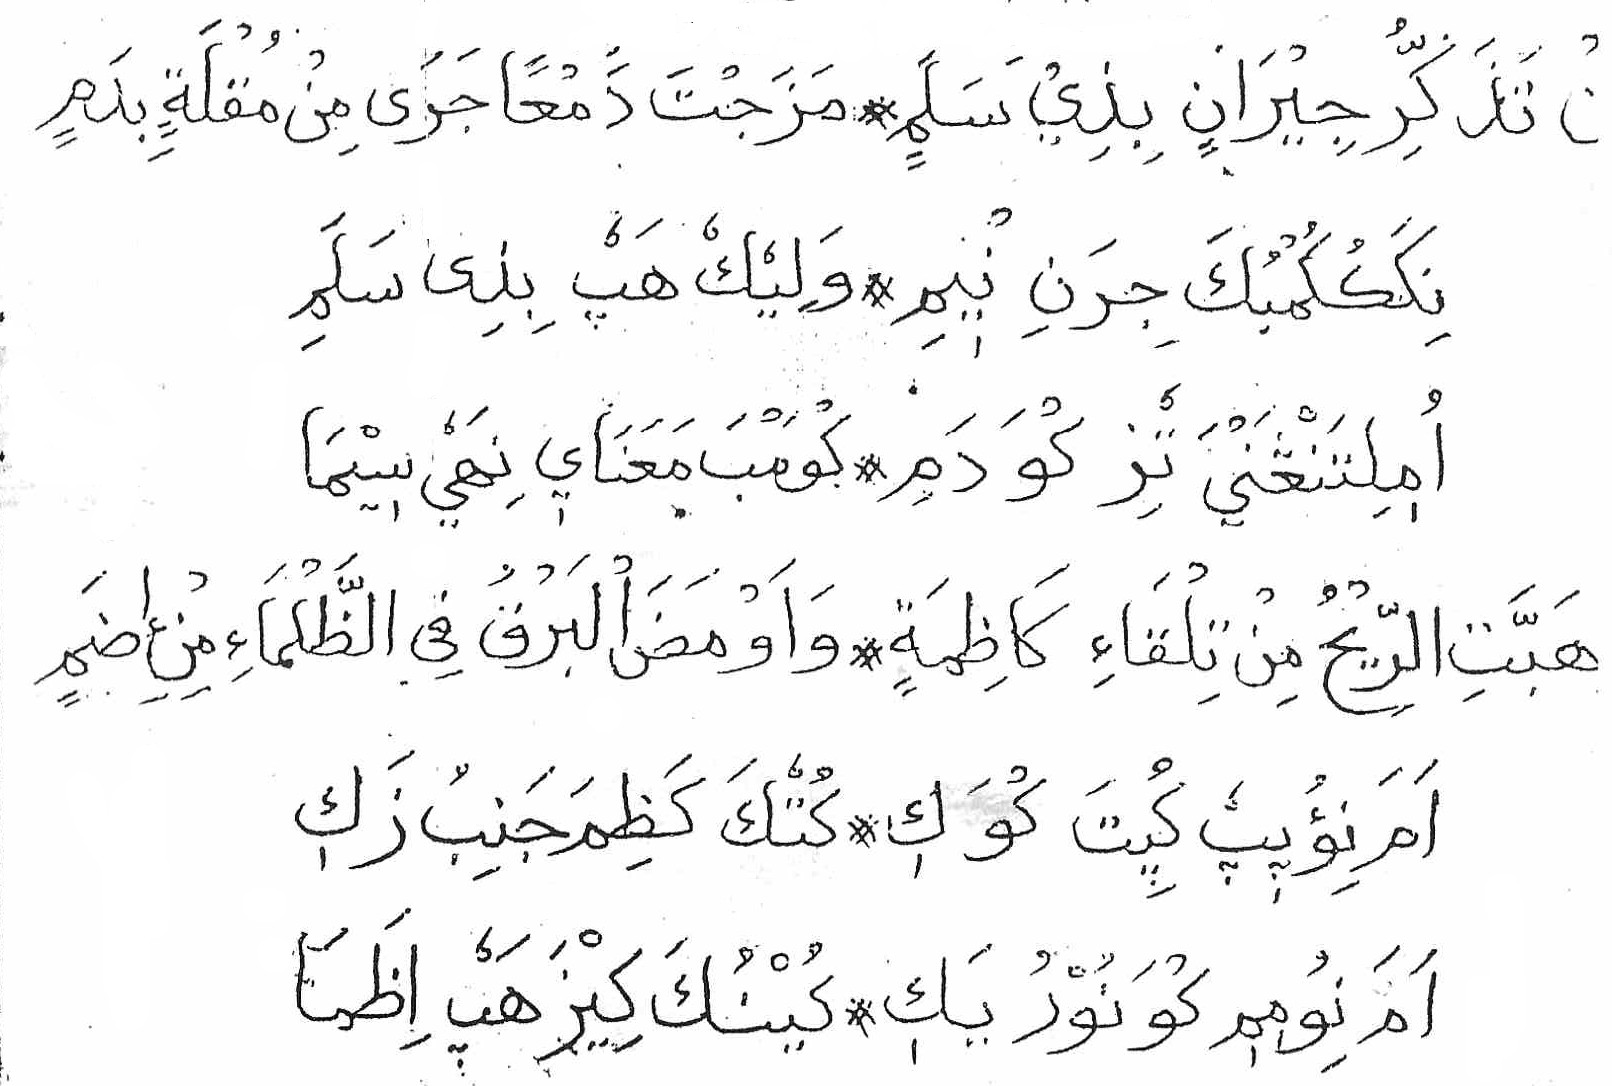 نْ تَذَكِّرُ جِيْرَانٍ بِذِيْ سَلَمٍ * مَزَجْتَ دَمْعًا جَرٰى مِنْ مُقْلَةٍ بِدَمٍ
نِكَكُكُمْبُكَ جِرَنِ نْيٖمِ * وَلِيْكُ هَپٗ بِذِى سَلَمِ
كُوَ دَمِ * كُوَمْبَ مَعَنَايٖ نِهَيٗ سٖيْمَا
هَبَّتِ الرِّيْحُ مِنْ تِلْقَاءِ كَاظِمَةٍ * وَاَوْمَضَ الْبَرْقُ فِي الظَّلْمَاءِ مِنْ اِضَمٍ
اَمَ نِؤُپٖپٗ كِيٖتَ كُوَكٖ * كُتٗكَ كَظِمَ جَنِبُ زَكٖ
اَمَ نِوُمٖمٖ كُوَ نُوْرُ يَكٖ * كُيْنُكَ كِيْزَ هَپٗ اِظَمَا